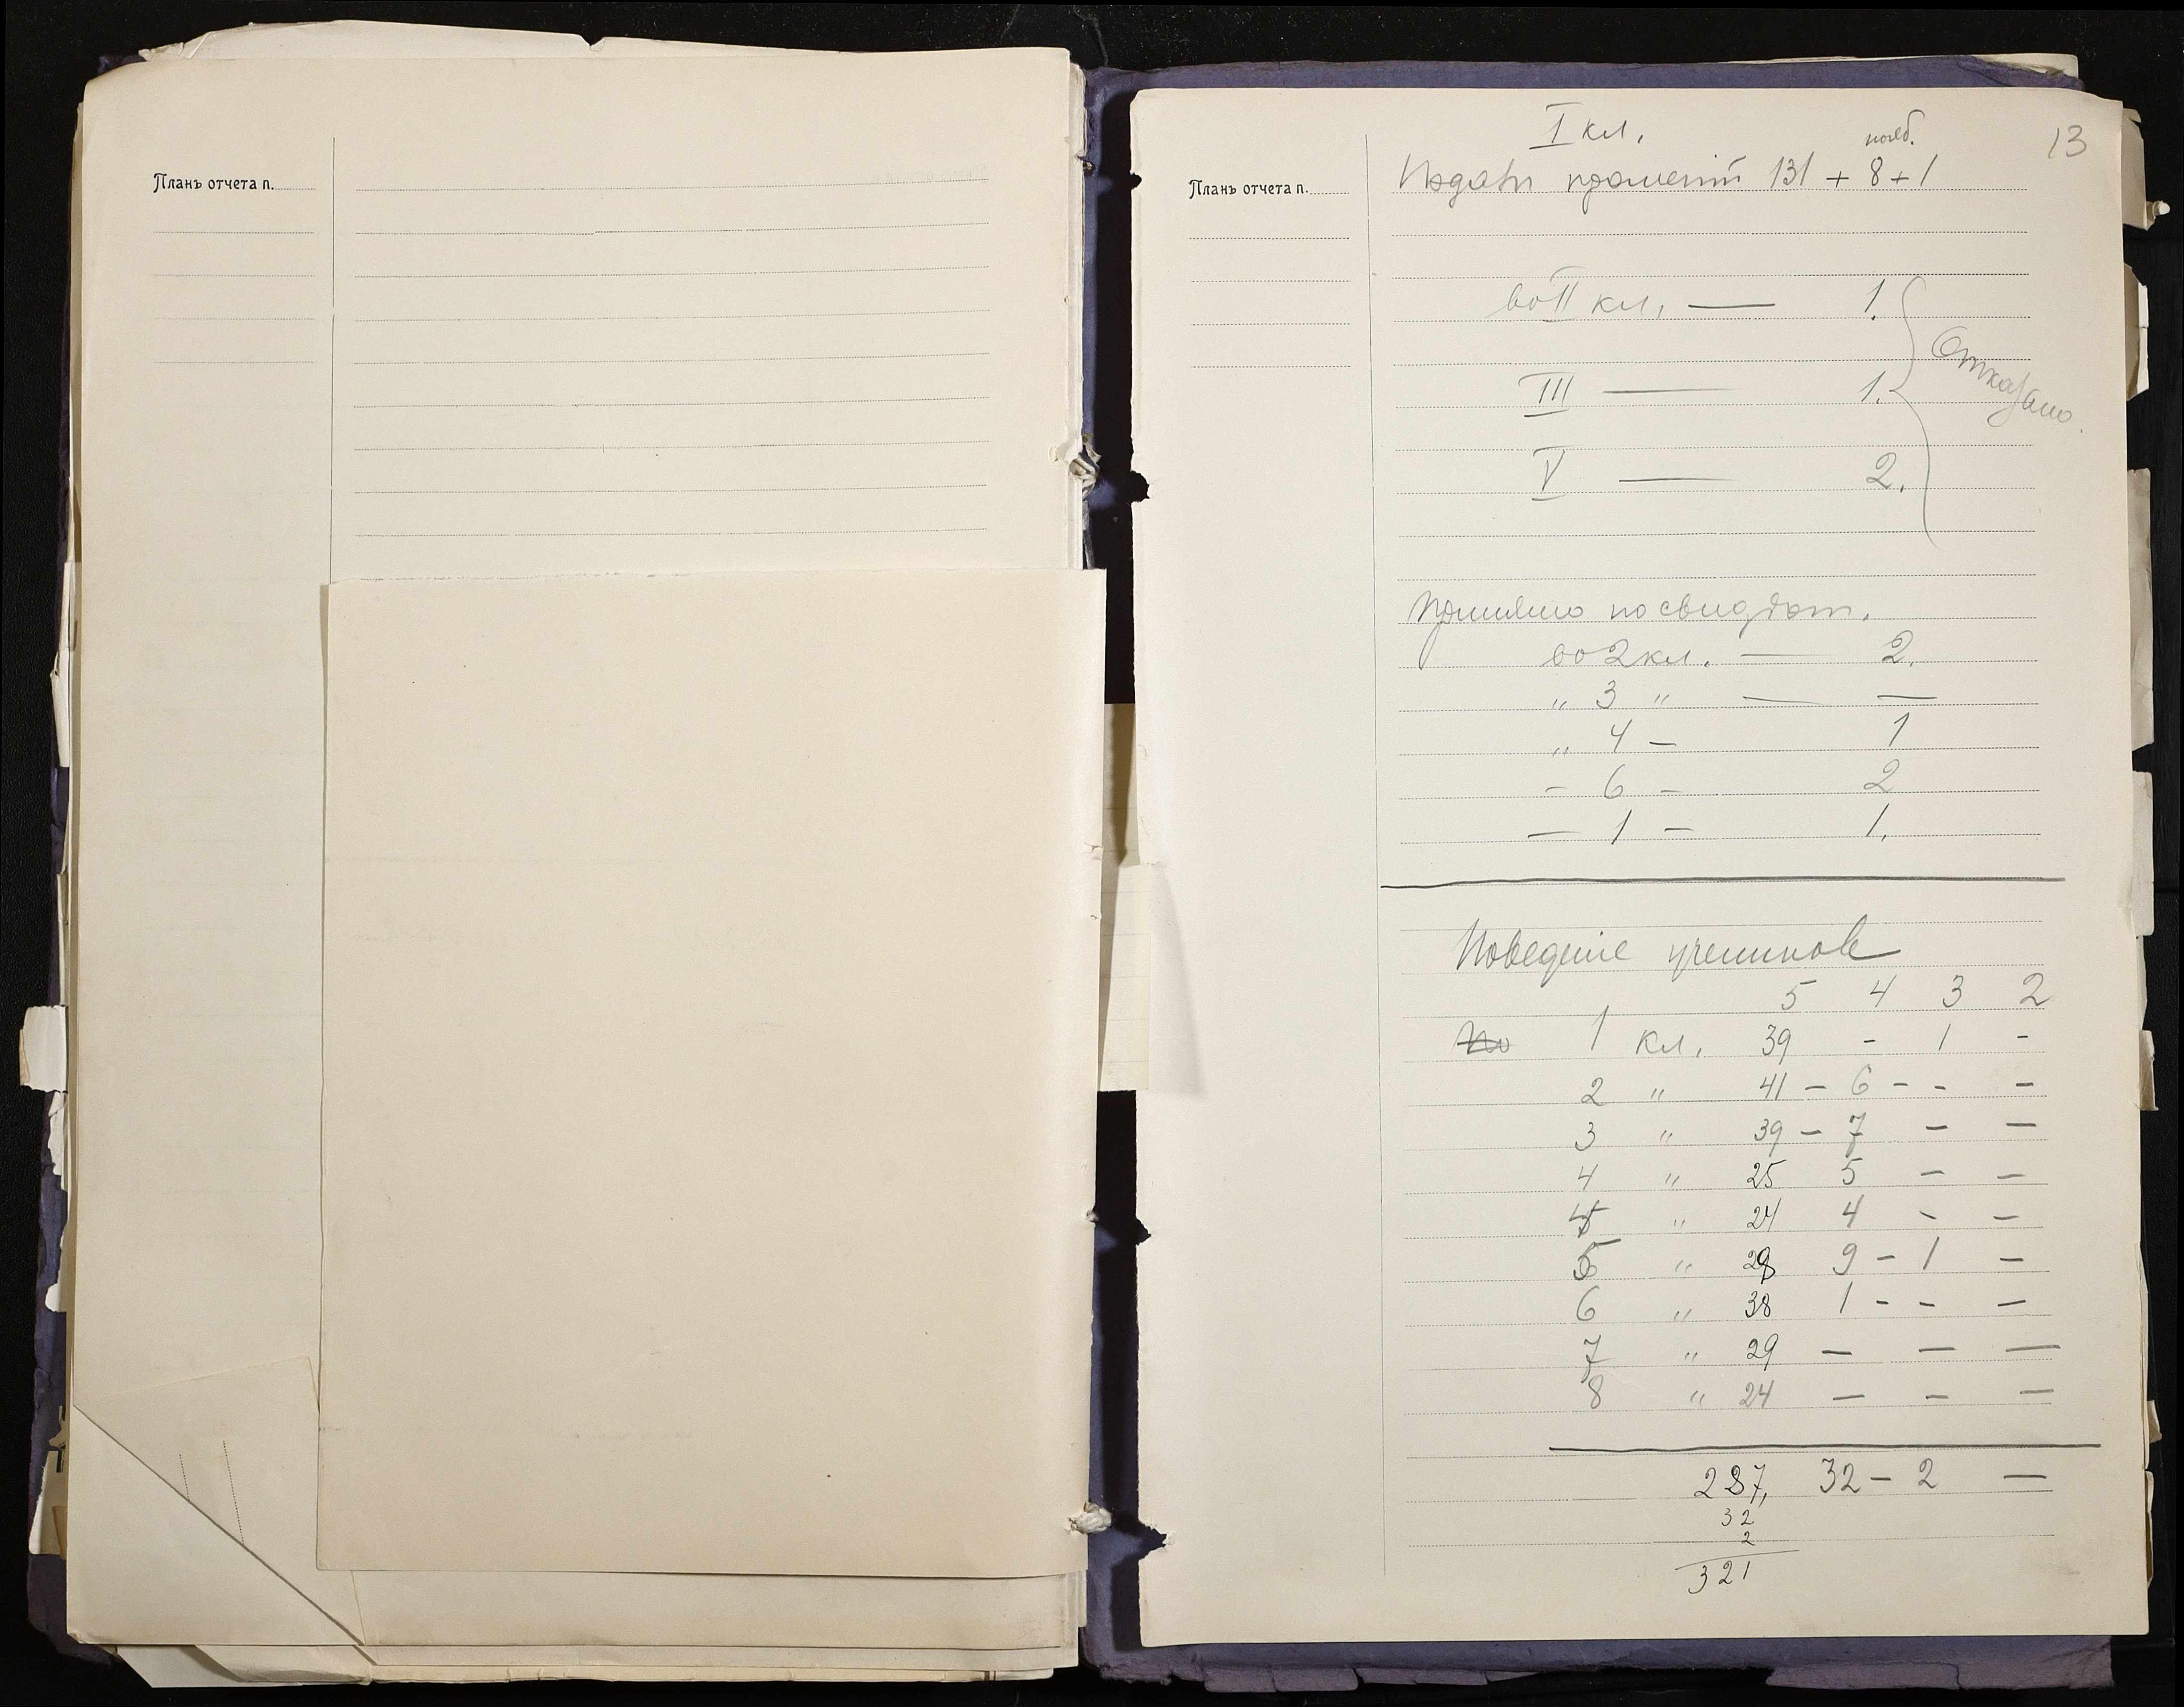 Планъ отчета п.
I кл.
13
нояб.
Планъ отчета п.
Подано прошеній 131 + 8 + 1
во II кл. — 1.
Отказано.
III — 1.
V — 2.
Принято по свидѣт.
во 2 кл. — 2.
„ 3 „ — —
„ 4 — 1
– 6 – 2
— 1 – 1.
Поведеніе учениковъ
5 4 3 2
По 1 кл. 39 - 1 -
2 „ 41 – 6 - - –
3 „ 39 – 7 – —
4 „ 25 5 – –
„ 24 4 - –
5 „ 9 – 1 –
6 „ 38 1 - - –
7 „ 29 — — —
8 „ 24 — – —
287, 32 – 2 —
32
2
321